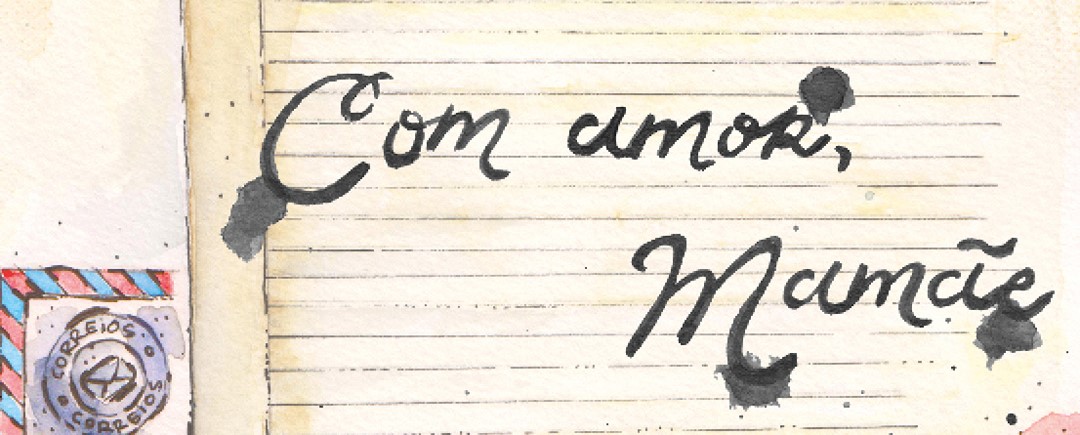 Com amor,
Mamãe
CORREIOS
CORREIOS